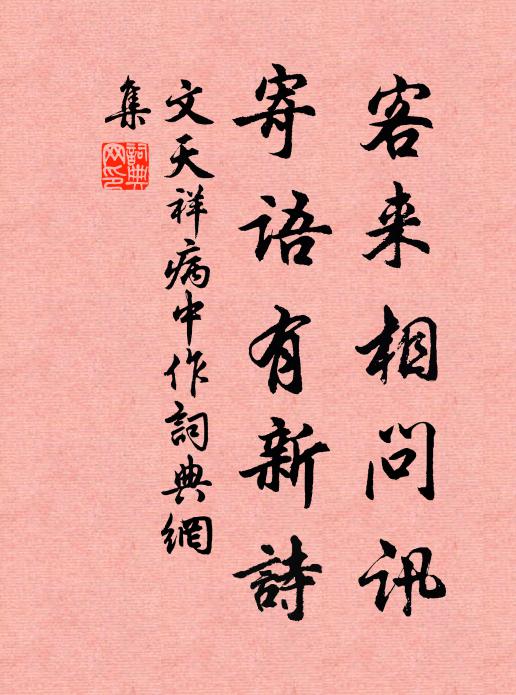 客来相问讯
寄语有新詩
文天祥病中作詞典網
集
詞典網印